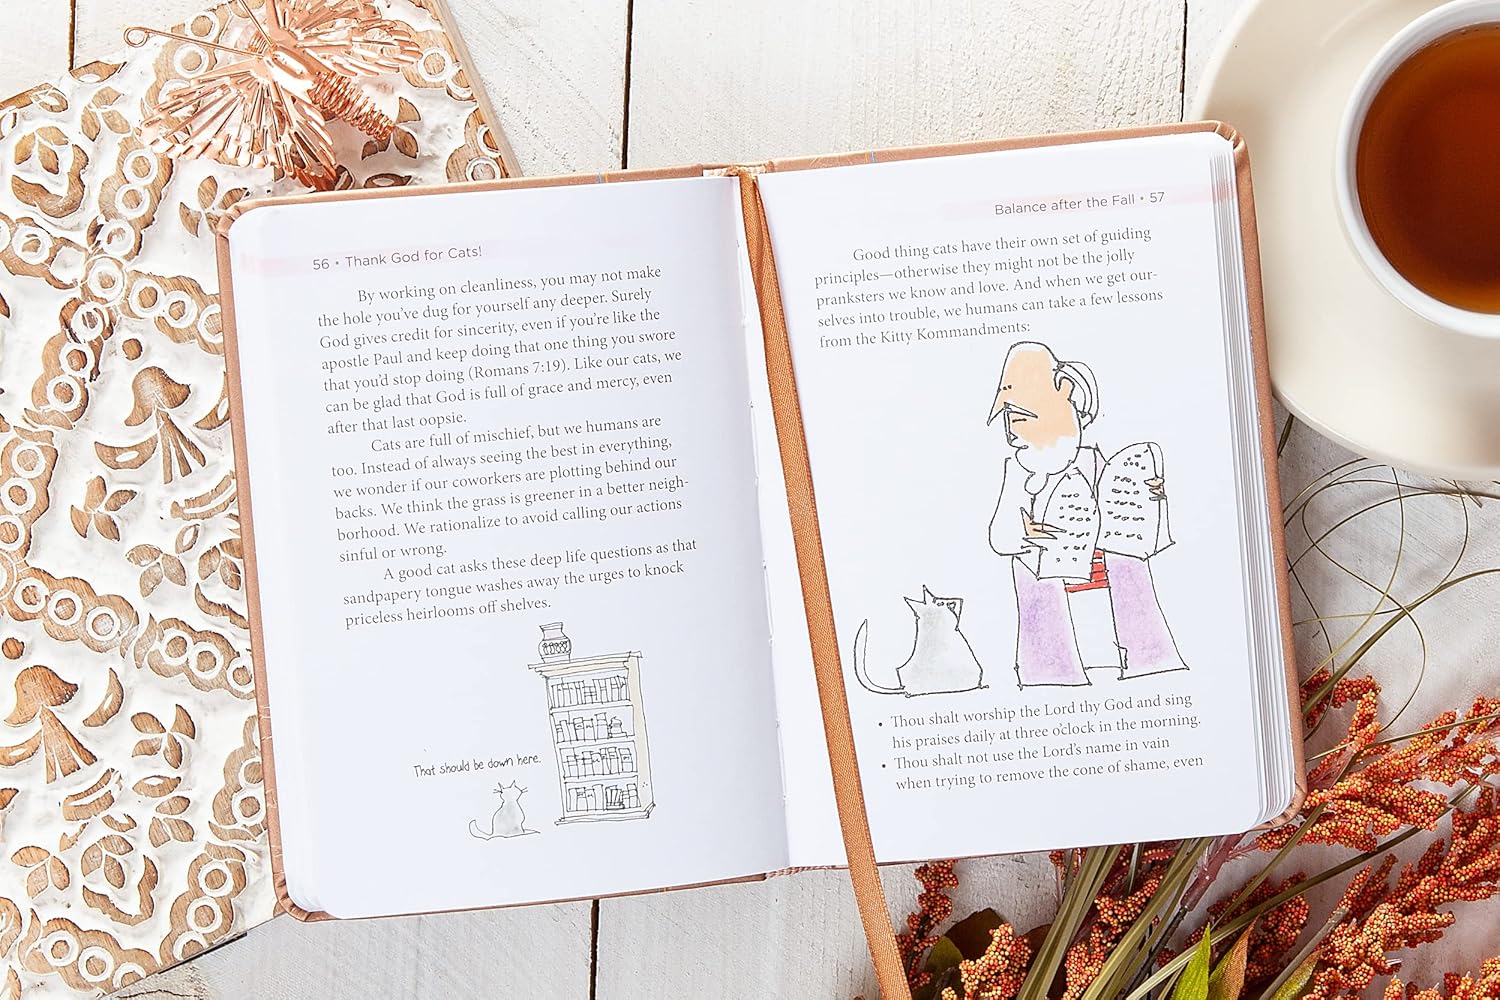 56 • Thank God for Cats!
By working on cleanliness, you may not make
the hole you've dug for yourself any deeper. Surely
God gives credit for sincerity, even if you're like the
apostle Paul and keep doing that one thing you swore
that you'd stop doing (Romans 7:19). Like our cats, we
can be glad that God is full of grace and mercy, even
after that last oopsie.
Cats are full of mischief, but we humans are
too. Instead of always seeing the best in everything,
we wonder if our coworkers are plotting behind our
backs. We think the grass is greener in a better neigh-
borhood. We rationalize to avoid calling our actions
sinful or wrong.
A good cat asks these deep life questions as that
sandpapery tongue washes away the urges to knock
priceless heirlooms off shelves.
That should be down here.
Balance after the Fall • 57
Good thing cats have their own set of guiding
principles—otherwise they might not be the jolly
pranksters we know and love. And when we get our-
selves into trouble, we humans can take a few lessons
from the Kitty Kommandments:
• Thou shalt worship the Lord thy God and sing
his praises daily at three o'clock in the morning.
• Thou shalt not use the Lord's name in vain
when trying to remove the cone of shame, even